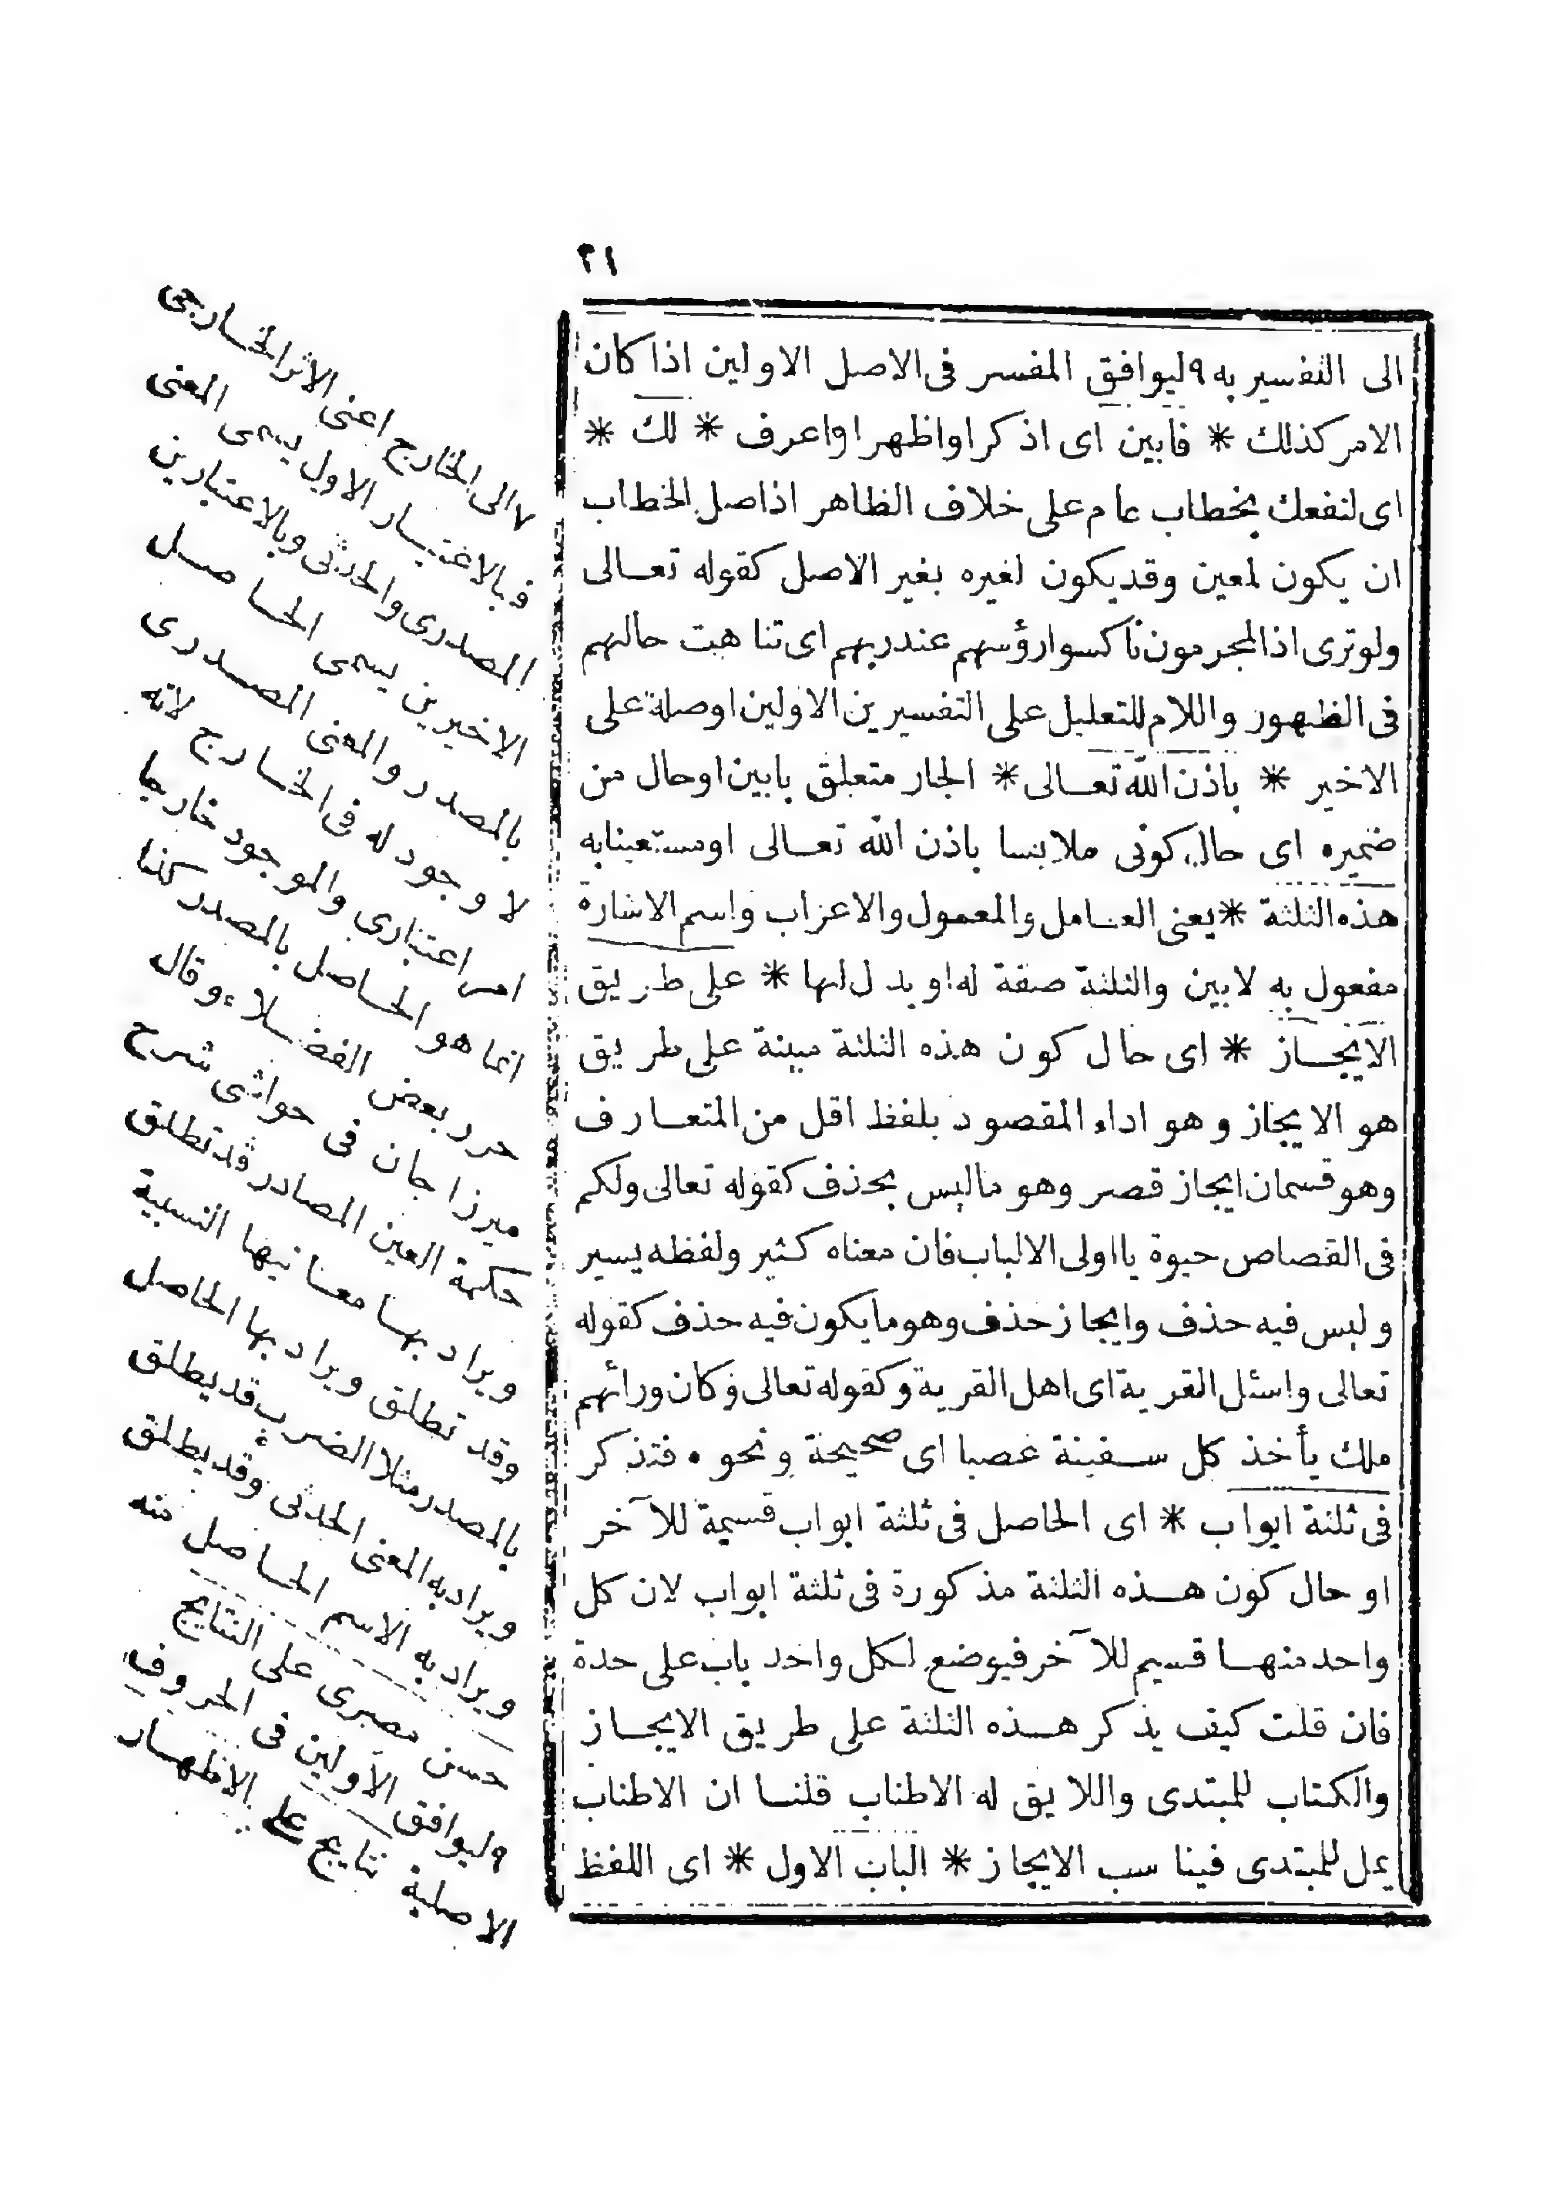 ٢١
الى التفسير به ٩ ليوافق المفسر فى الاصل الاولين اذا كان
الامر كذلك * فابين اى اذكر او اظهر او اعرف * لك *
اى لنفعك بخطاب عام على خلاف الظاهر اذ اصل الخطاب
ان يكون لمعين وقد يكون لغيره بغير الاصل كقوله تعالى
ولو ترى اذ المجرمون ناكسوا رؤسهم عند ربهم اى تناهت حالهم
فى الظهور واللام للتعليل على التفسيرين الاولين او صلة على
الاخير * باذن الله تعالى * الجار متعلق بابين او حال من
ضميره اى حال كونى ملابسا باذن الله تعالى او مستعينا به
هذه الثلثة * يعنى العامل والمعمول والاعراب واسم الاشارة
مفعول به لابين والثلثة صفة له او بدل لها * على طريق
الايجاز * اى حال كون هذه الثلثة مبينة على طريق
هو الايجاز وهو اداء المقصود بلفظ اقل من المتعارف
وهو قسمان ايجاز قصر وهو ما ليس بحذف كقوله تعالى ولكم
فى القصاص حيوة يا اولى الالباب فان معناه كثير ولفظه يسير
وليس فيه حذف وايجاز حذف وهو ما يكون فيه حذف كقوله
تعالى واسئل القرية اى اهل القرية وكقوله تعالى وكان ورائهم
ملك يأخذ كل سفينة غصبا اى صحيحة ونحوه فتذكر
فى ثلثة ابواب * اى الحاصل فى ثلثة ابواب قسيمة للآخر
او حال كون هذه الثلثة مذكورة فى ثلثة ابواب لان كل
واحد منها قسيم للآخر فيوضع لكل واحد باب على حدة
فان قلت كيف يذكر هذه الثلثة على طريق الايجاز
والكتاب للمبتدى واللايق له الاطناب قلنا ان الاطناب
يمل للمبتدى فيناسب الايجاز * الباب الاول * اى اللفظ
٧ الى الخارج اعنى الاثر الخارجى
فبالاعتبار الاول يسمى المعنى
المصدرى والحدثى وبالاعتبارين
الاخيرين يسمى الحاصل
بالمصدر والمعنى المصدرى
لا وجود له فى الخارج لانه
امر اعتبارى والموجود خارجا
انما هو الحاصل بالمصدر كذا
حرر بعض الفضلاء وقال
ميرزا جان فى حواشى شرح
حكمة العين المصادر قد تطلق
ويراد بها معانيها النسبية
وقد تطلق ويراد بها الحاصل
بالمصدر مثلا الضرب قد يطلق
ويراد به المعنى الحدثى وقد يطلق
ويراد به الاسم الحاصل منه
حسن مصرى على النتايج
٩ ليوافق الاولين فى الحروف
الاصلية نتايج على الاظهار